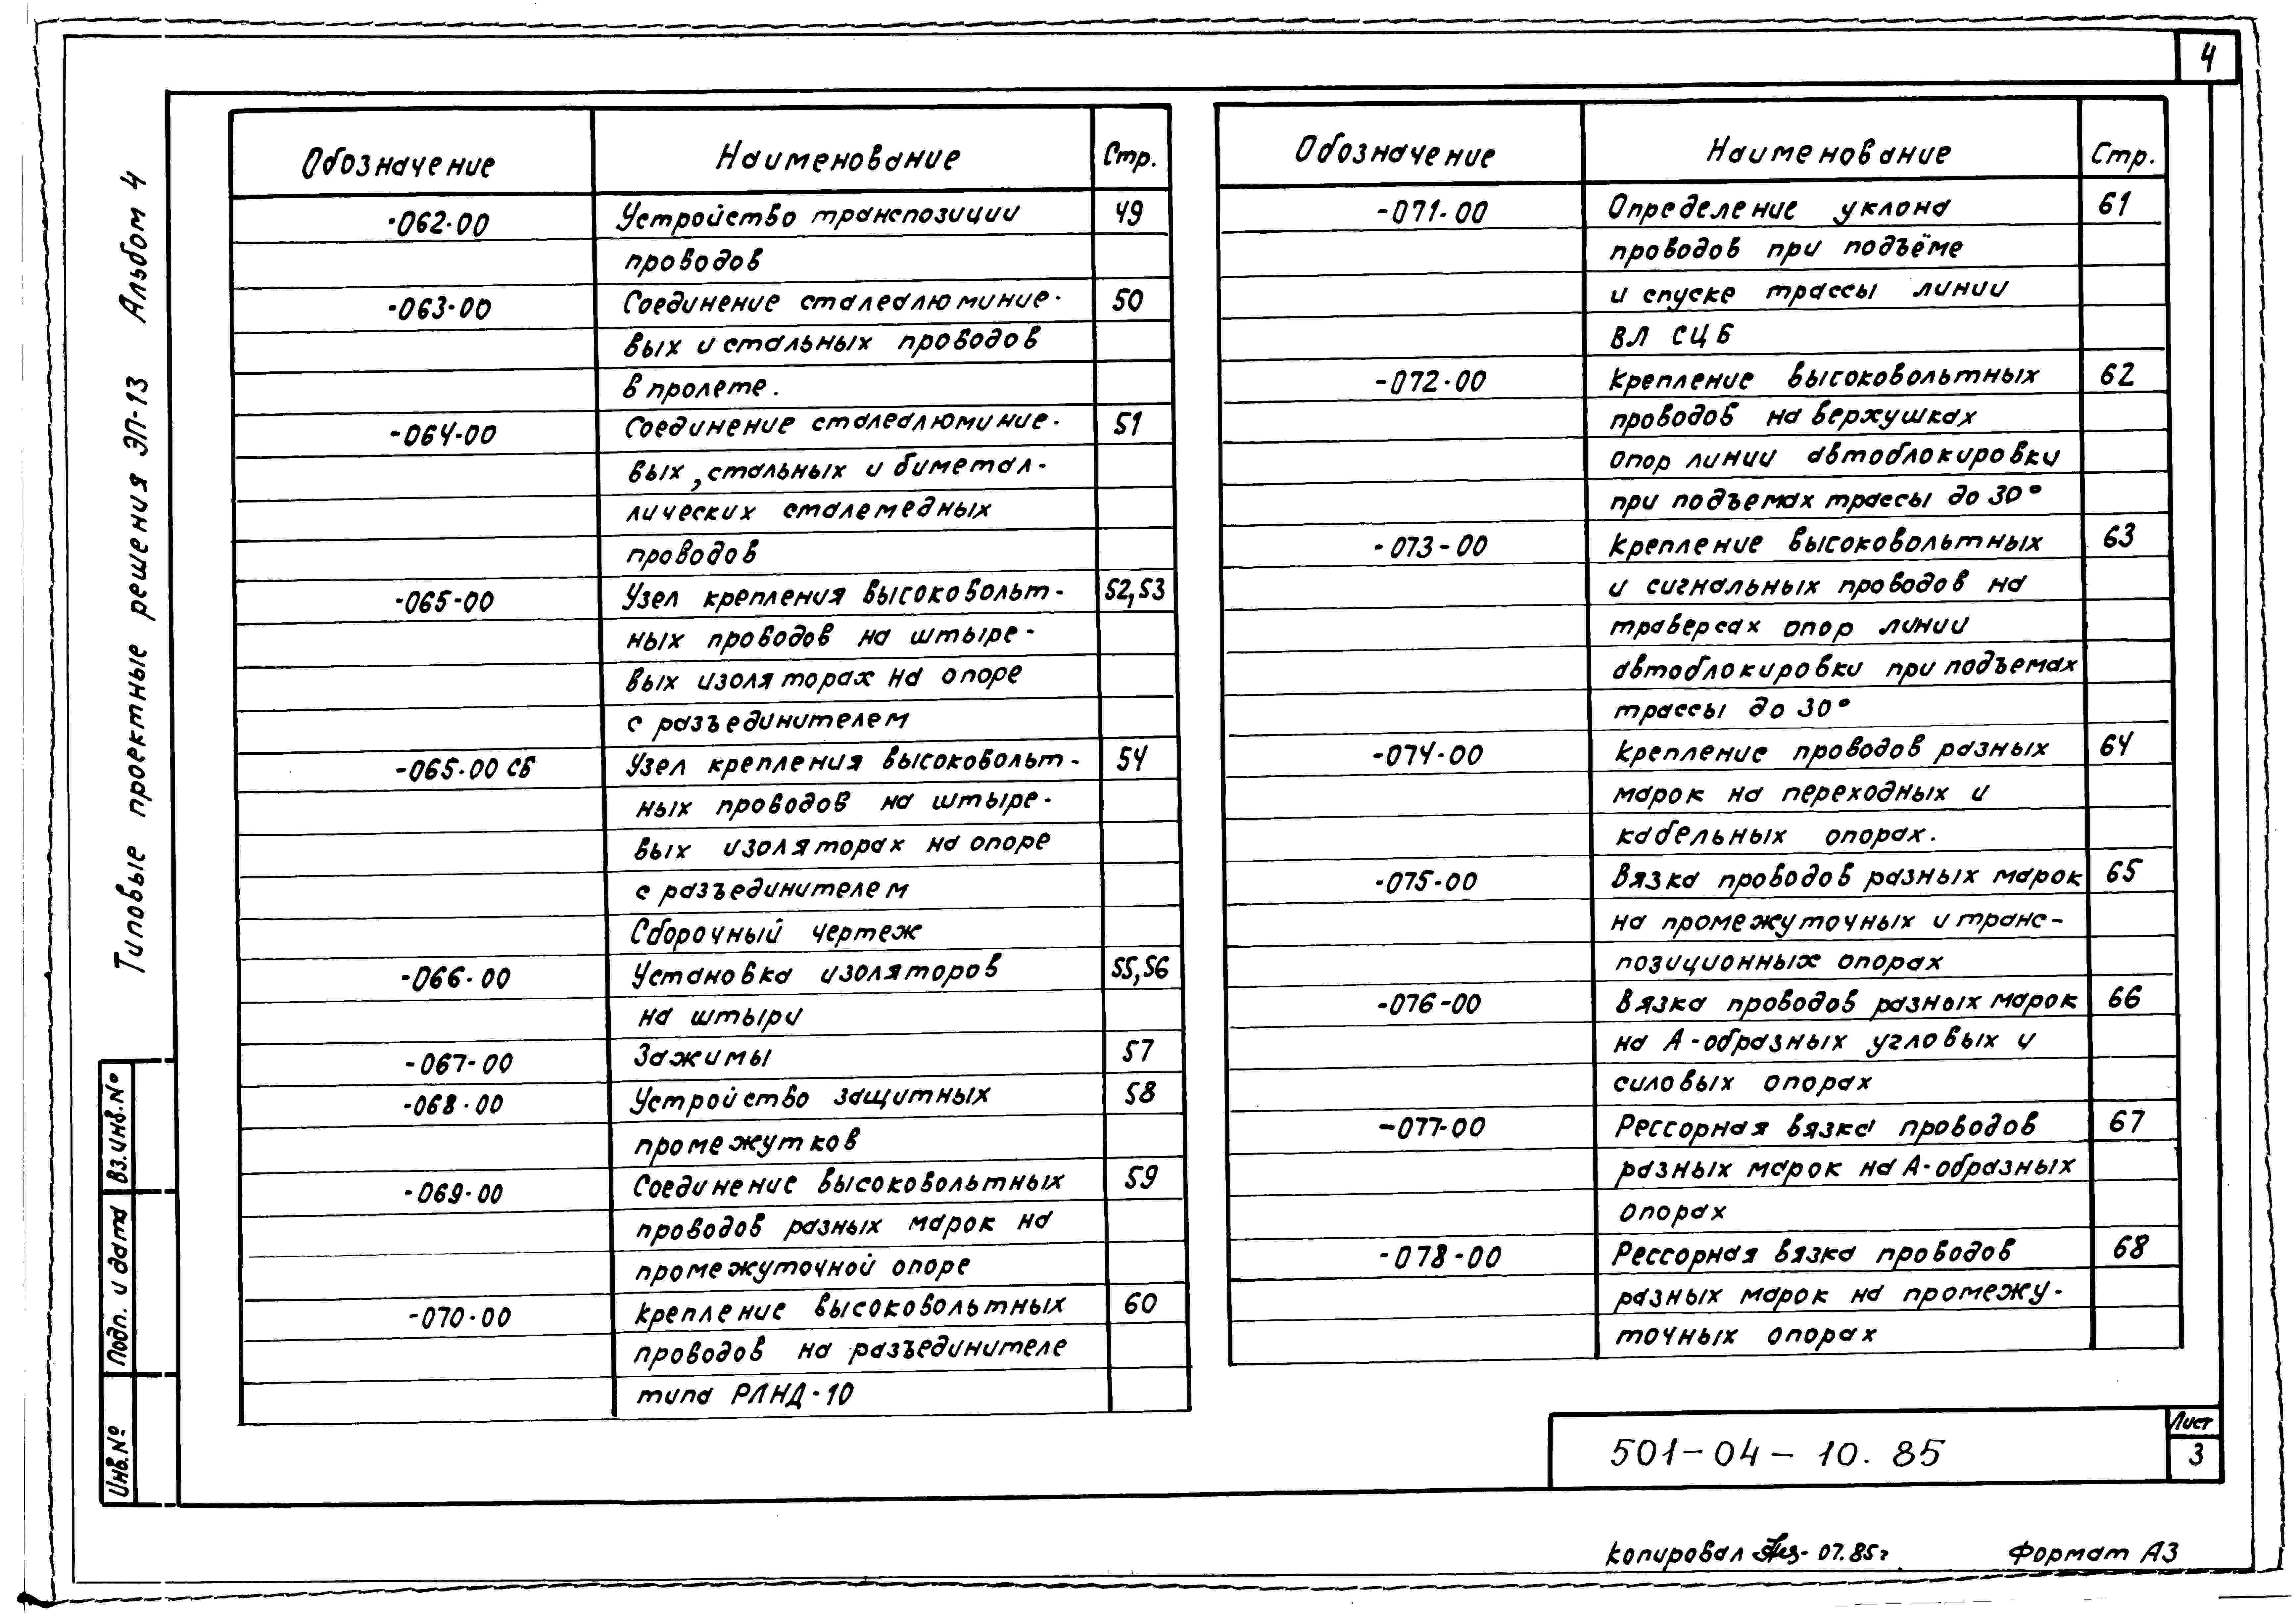 4
Типовые проектные решения ЭП-13 Альбом 4
Обозначение Наименование Стр.
-062-00 Устройство транспозиции 49
проводов
-063-00 Соединение сталеалюминие- 50
вых и стальных проводов
в пролете.
-064-00 Соединение сталеалюминие- 51
вых, стальных и биметал-
лических сталемедных
проводов
-065-00 Узел крепления высоковольт- 52,53
ных проводов на штыре-
вых изоляторах на опоре
с разъединителем
-065-00 СБ Узел крепления высоковольт- 54
ных проводов на штыре-
вых изоляторах на опоре
с разъединителем
Сборочный чертеж
-066-00 Установка изоляторов 55,56
на штыри
-067-00 Зажимы 57
-068-00 Устройство защитных 58
промежутков
-069-00 Соединение высоковольтных 59
проводов разных марок на
промежуточной опоре
-070-00 крепление высоковольтных 60
проводов на разъединителе
типа РЛНД-10
Обозначение Наименование Стр.
-071-00 Определение уклона 61
проводов при подъёме
и спуске трассы линии
ВЛ СЦБ
-072-00 крепление высоковольтных 62
проводов на верхушках
опор линии автоблокировки
при подъемах трассы до 30°
-073-00 крепление высоковольтных 63
и сигнальных проводов на
траверсах опор линии
автоблокировки при подъемах
трассы до 30°
-074-00 крепление проводов разных 64
марок на переходных и
кабельных опорах.
-075-00 Вязка проводов разных марок 65
на промежуточных и транс-
позиционных опорах
-076-00 Вязка проводов разных марок 66
на А-образных угловых и
силовых опорах
-077-00 Рессорная вязка проводов 67
разных марок на А-образных
опорах
-078-00 Рессорная вязка проводов 68
разных марок на промежу-
точных опорах
Вз.инв.№
Подп. и дата
Инв.№
501-04-10.85
Лист
3
копировал 07.85г Формат А3